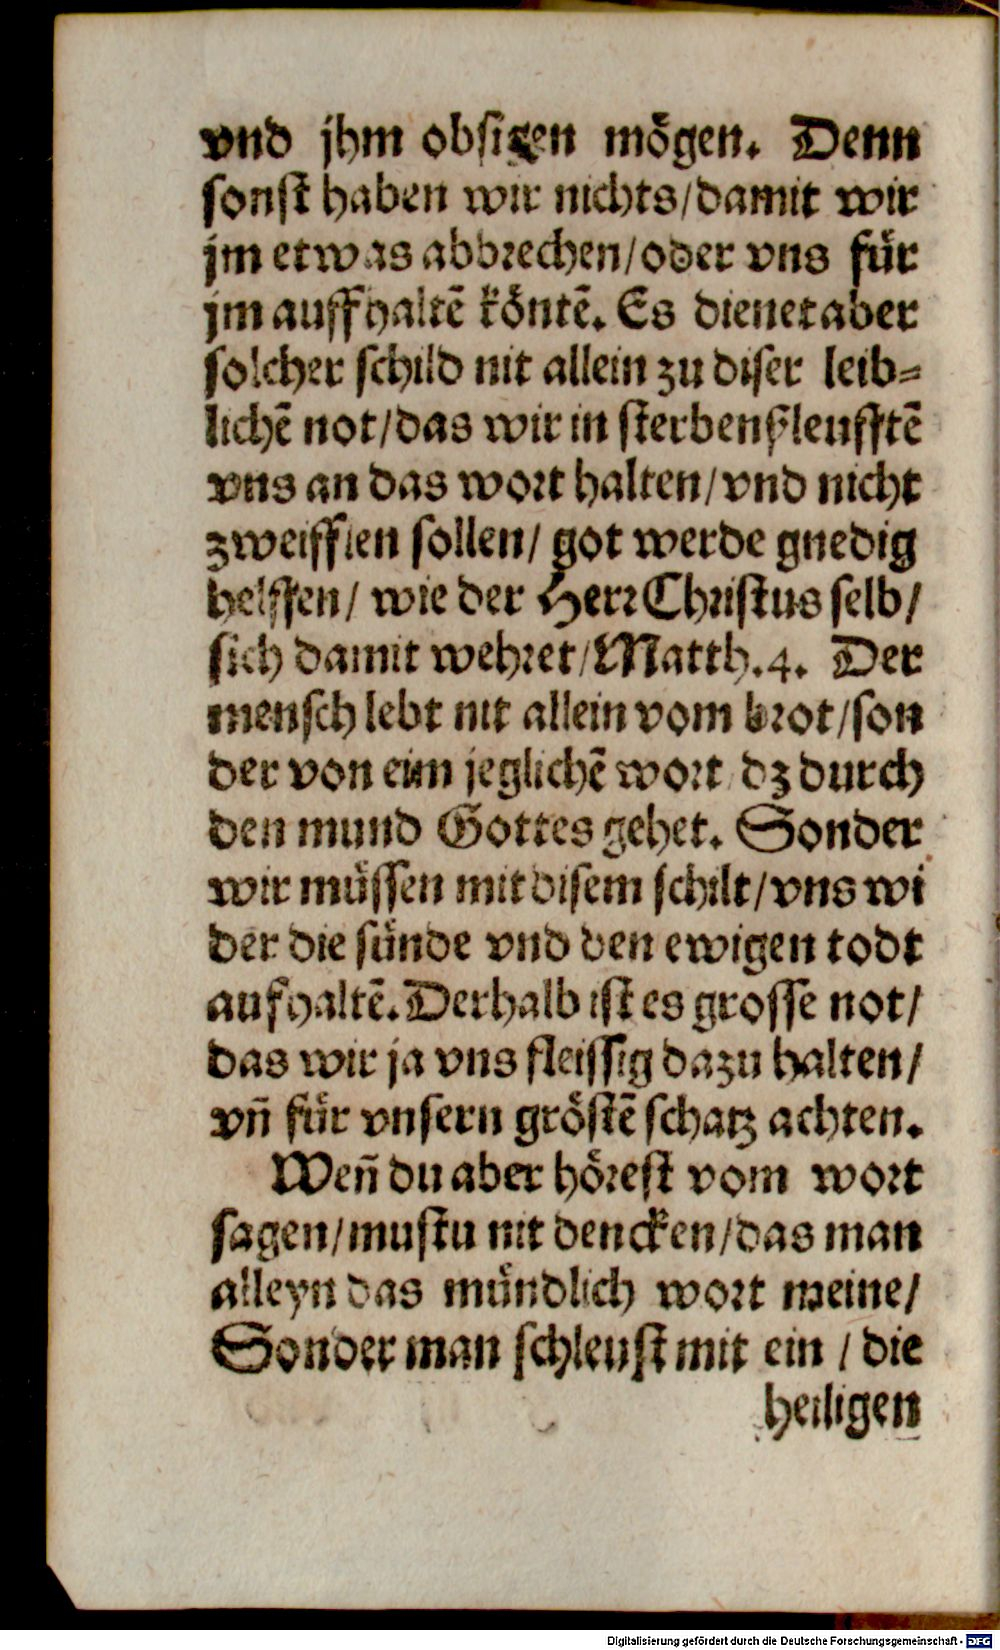 vnd jhm obsigen mögen. Denn
sonst haben wir nichts/damit wir
jm etwas abbrechen/oder vns für
jm auffhaltē köntē. Es dienet aber
solcher schild nit allein zu diser leib=
lichē not/das wir in sterbenßleufftē
vns an das wort halten/vnd nicht
zweifflen sollen/ got werde gnedig
helffen/ wie der Herr Christus selb/
sich damit wehret/Matth.4. Der
mensch lebt nit allein vom brot/son
der von eim jeglichē wort dz durch
den mund Gottes gehet. Sonder
wir müssen mit disem schilt/vns wi
der die sünde vnd den ewigen todt
aufhaltē. Derhalb ist es grosse not/
das wir ja vns fleissig dazu halten/
vn̄ für vnsern gröstē schatz achten.
Wen̄ du aber hörest vom wort
sagen/mustu nit dencken/das man
alleyn das mündlich wort meine/
Sonder man schleust mit ein / die
heiligen
Digitalisierung gefördert durch die Deutsche Forschungsgemeinschaft - DFG